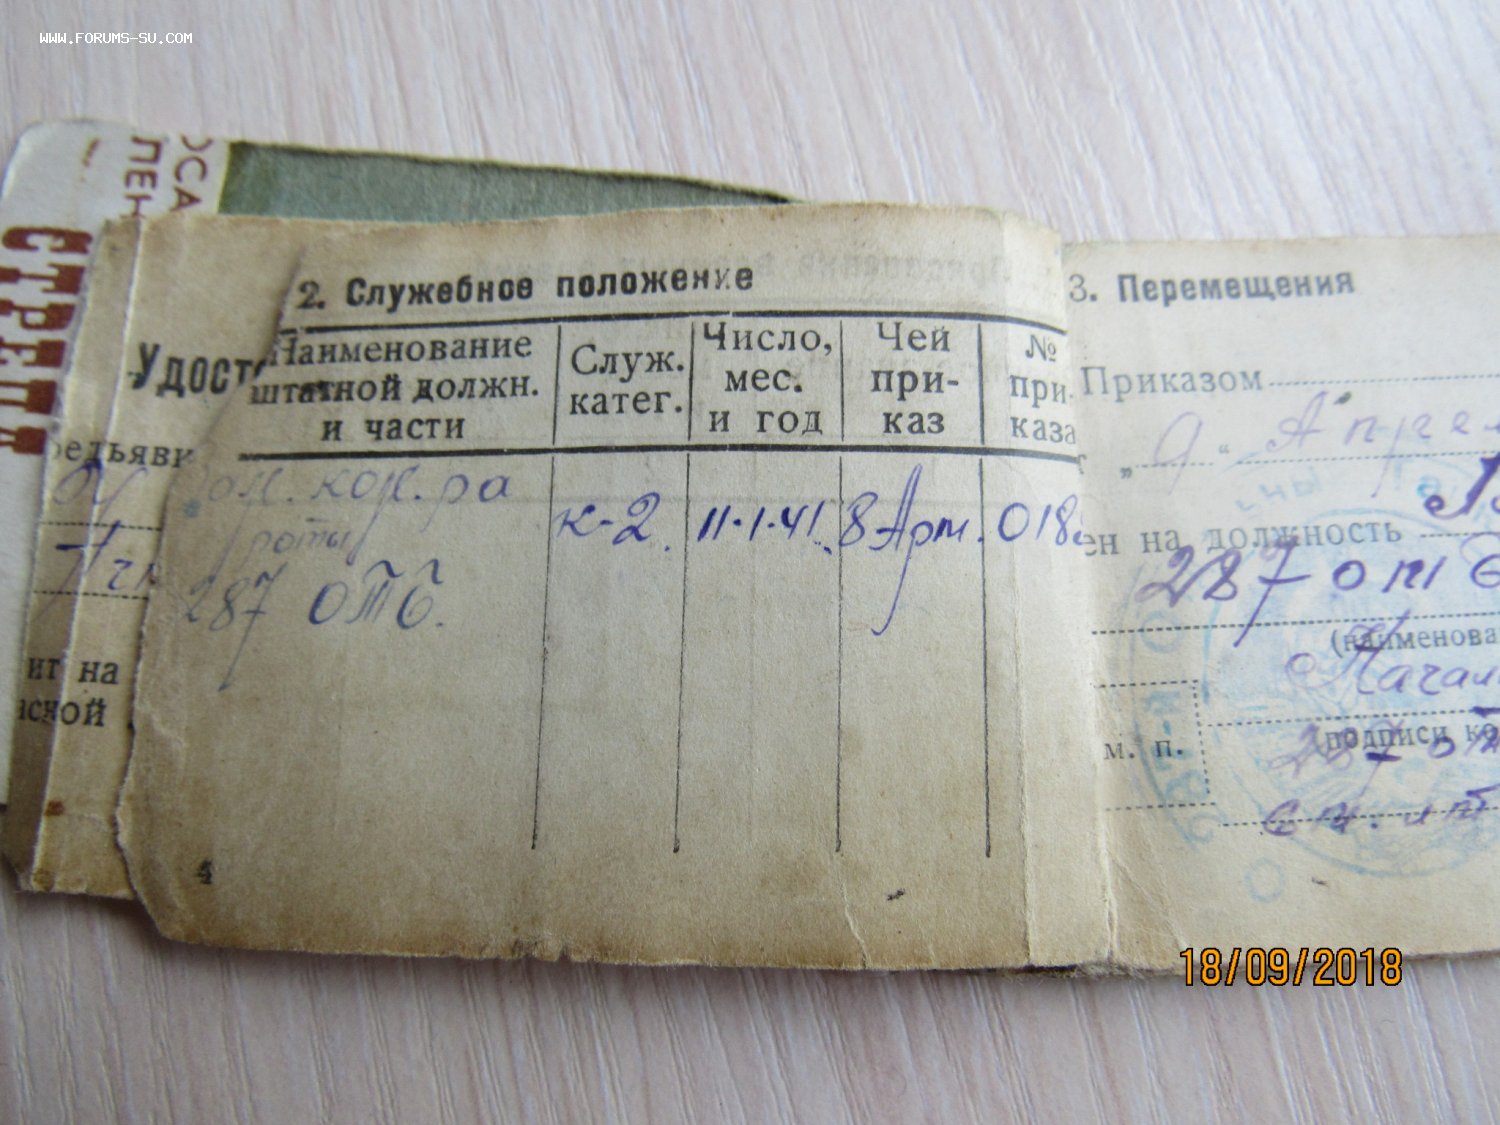 WWW.FORUMS-SU.COM
ОСА
ЛЕН
СТРЕЛ
Удост
редьяви
ит на
асной
2. Служебное положение
Наименование
штатной должн.
и части
Служ.
катег.
Число,
мес.
и год
Чей
при-
каз
№
при-
каза
роты
287 ОТБ.
К-2.
11.1.41.
8 Арм.
018
4
3. Перемещения
Приказом
„9“ Апрел
ен на должность
287 отб
(наименова
Начал
м. п.
(подписи ко
287 от
18/09/2018